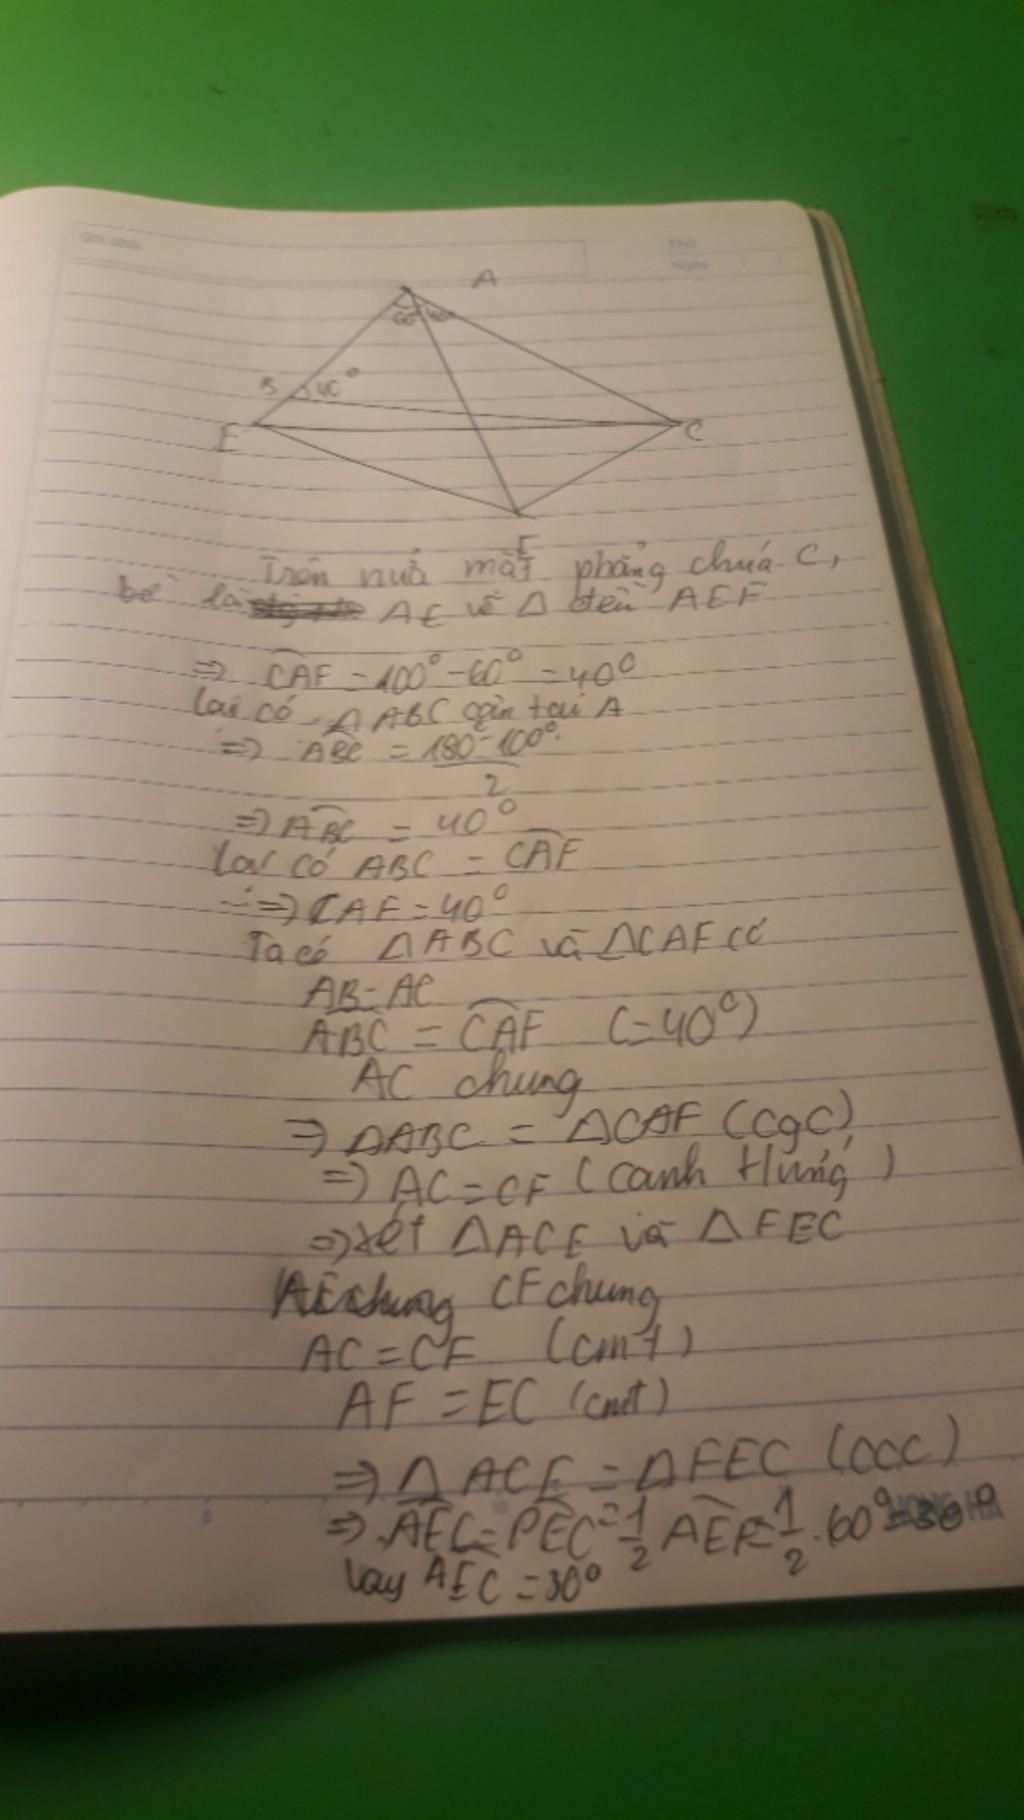 Thứ
Ngày
A
60° 40°
B 40°
E C
F
Trên nửa mặt phẳng chứa C,
bờ là AE vẽ Δ đều AEF
=> CAF = 100° - 60° = 40°
lại có Δ ABC cân tại A
=> ABC = 180° - 100°
2
=> ABC = 40°
lại có ABC = CAF
=> CAF = 40°
Ta có ΔABC và ΔCAF có
AB = AC
ABC = CAF (=40°)
AC chung
=> ΔABC = ΔCAF (cgc)
=> AC = CF (cạnh tứng)
=> xét ΔACE và ΔFEC
CF chung
AC = CF (cmt)
AF = EC (cmt)
=> Δ ACE = ΔFEC (ccc)
=> AEC = PEC = 1/2 AEF = 1/2 . 60° = 30°
HONG HA
Vậy AEC = 30°